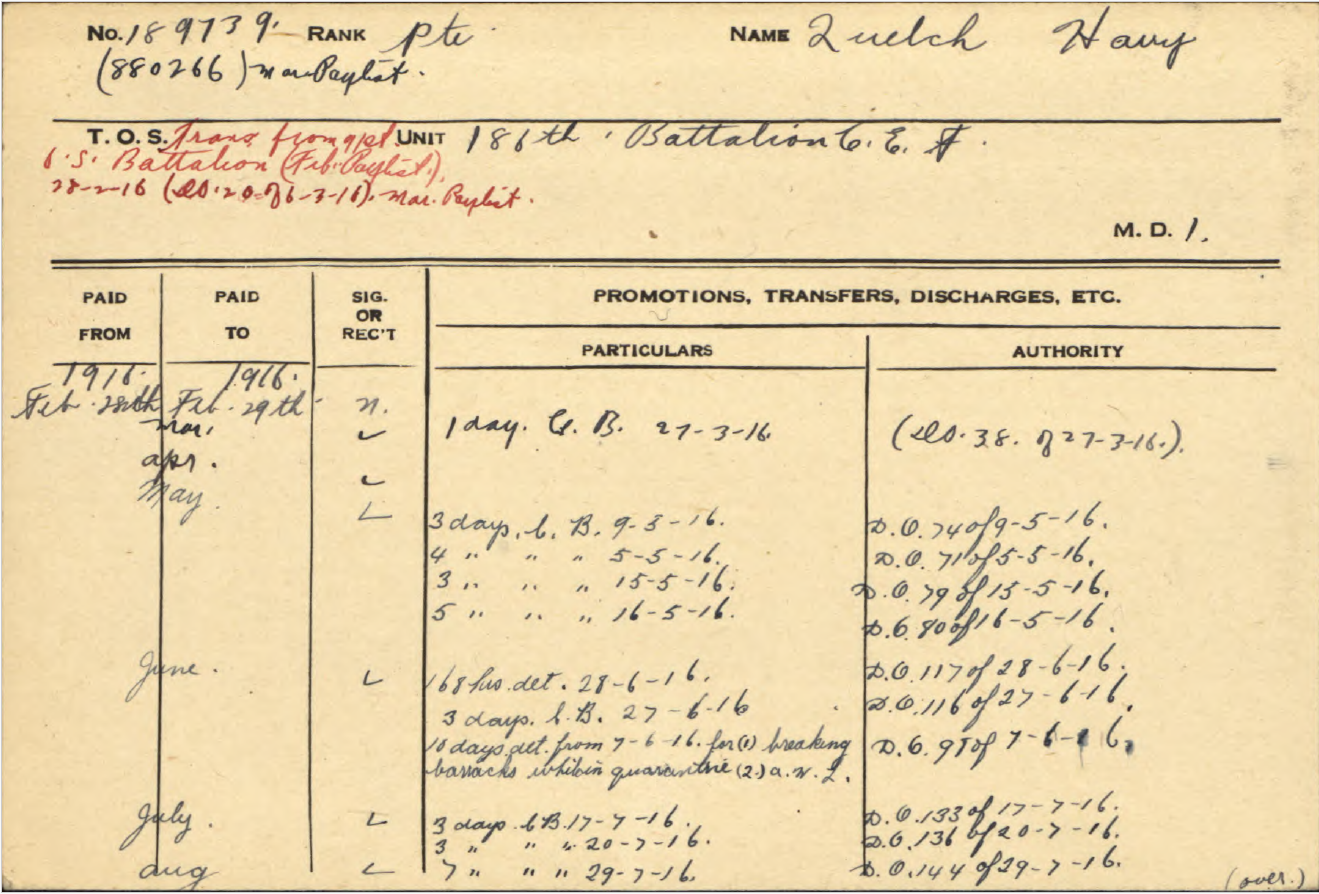 No. 189739. RANK Pte NAME Quelch Harry
(880266) Mar. Paylist.
T. O. S. Trans. from 91st. UNIT 186th. Battalion C. E. F.
O.S. Battalion (Feb. Paylist.)
28-2-16 (D.O. 20 of 6-3-16). Mar. Paylist.
M. D. 1.
PAID FROM PAID TO SIG. OR REC'T PROMOTIONS, TRANSFERS, DISCHARGES, ETC.
PARTICULARS AUTHORITY
1916. 1916.
Feb. 28th Feb. 29th n.
Mar. ✓ 1 day. C. B. 27-3-16. (D.O. 38. of 27-3-16.).
Apr. ✓
May ✓
3 days. C. B. 9-3-16. D.O. 74 of 9-5-16.
4 " " " 5-5-16. D.O. 71 of 5-5-16.
3 " " " 15-5-16. D.O. 79 of 15-5-16.
5 " " " 16-5-16. D.O. 80 of 16-5-16.
June. ✓ 168 hrs. det. 28-6-16. D.O. 117 of 28-6-16.
3 days. C. B. 27-6-16 D.O. 116 of 27-6-16.
10 days det. from 7-6-16. for (1) breaking D.O. of 7-6-16.
barracks in quarantine (2.) a. w. L.
July. ✓ 3 days C.B. 17-7-16. D.O. 133 of 17-7-16.
3 " " " 20-7-16. D.O. 136 of 20-7-16.
Aug ✓ 7 " " " 29-7-16. D.O. 144 of 29-7-16.
(over.)